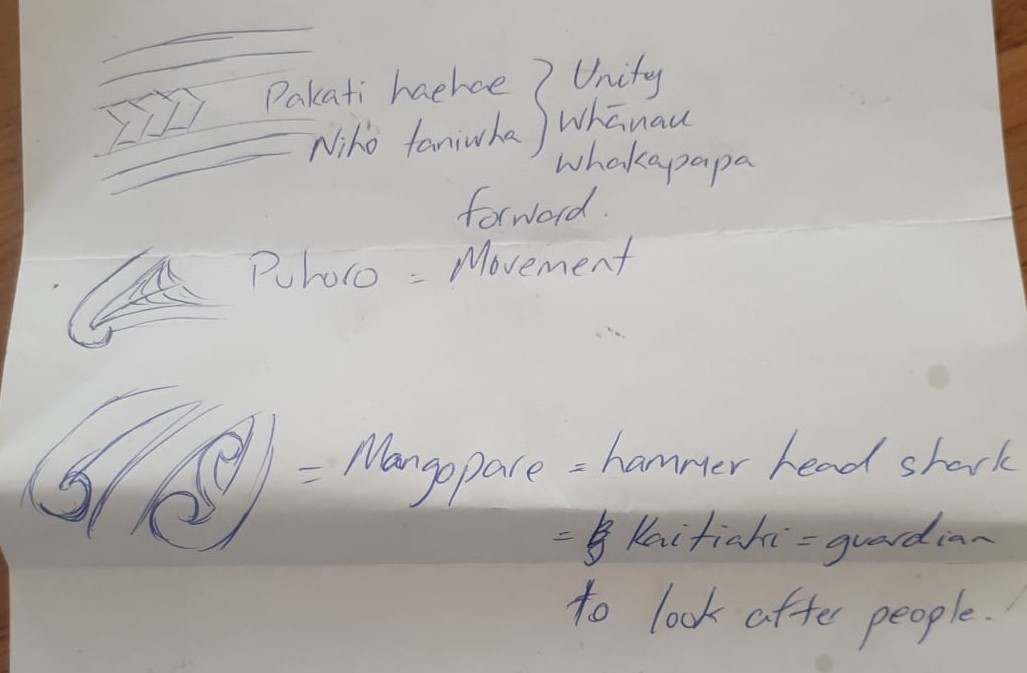 Pakati haehae } Unity
Niho taniwha } Whānau
whakapapa
forward.
Puhoro = Movement
= Mangopare = hammer head shark
= Kaitiaki = guardian
to look after people.